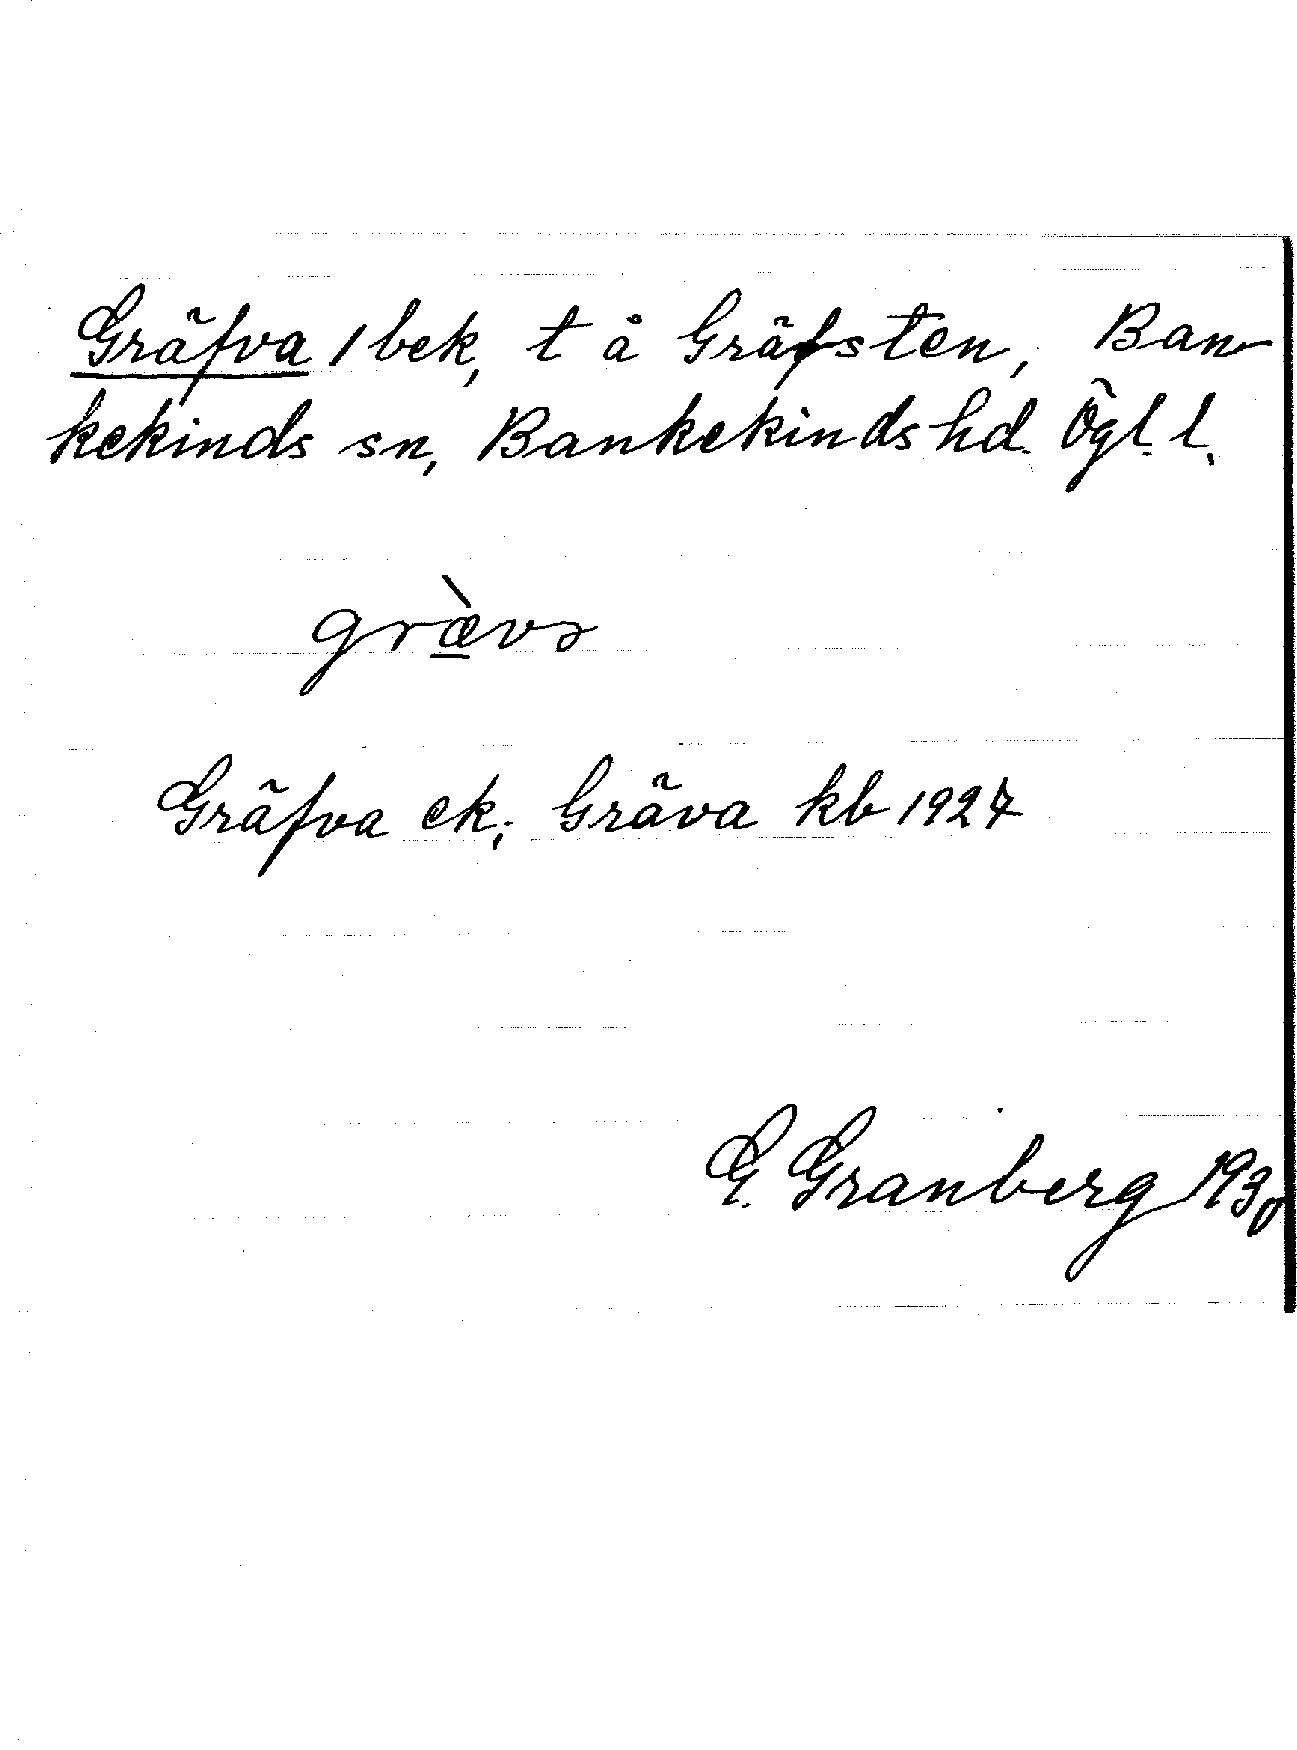 Gräfva 1 bek, t å Gräfsten, Ban-
kekinds sn, Bankekinds hd. Ögl. l.
græ̀vɔ
Gräfva ek; Gräva kb 1927
G. Granberg 1930